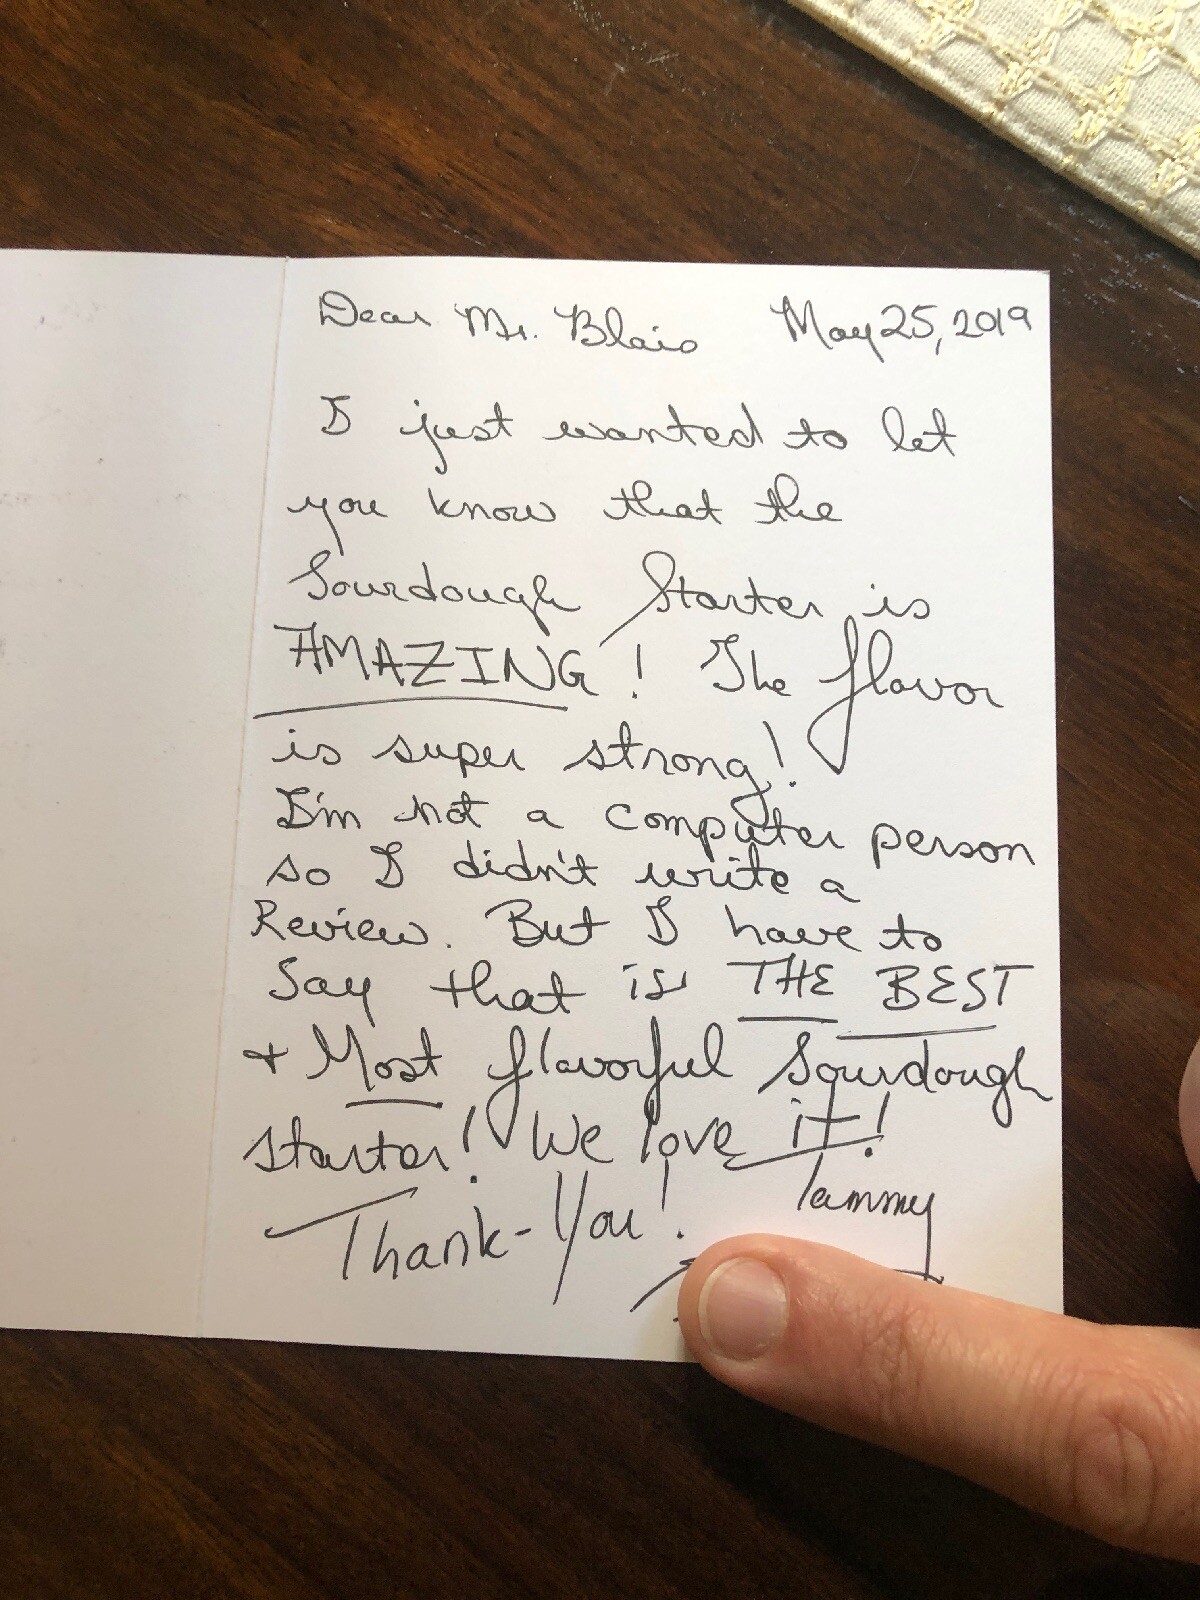 Dear Mr. Blais May 25, 2019
I just wanted to let
you know that the
Sourdough Starter is
AMAZING! The flavor
is super strong!
I'm not a computer person
so I didn't write a
Review. But I have to
Say that is THE BEST
+ Most flavorful Sourdough
starter! We love it!
Thank-You! Tammy